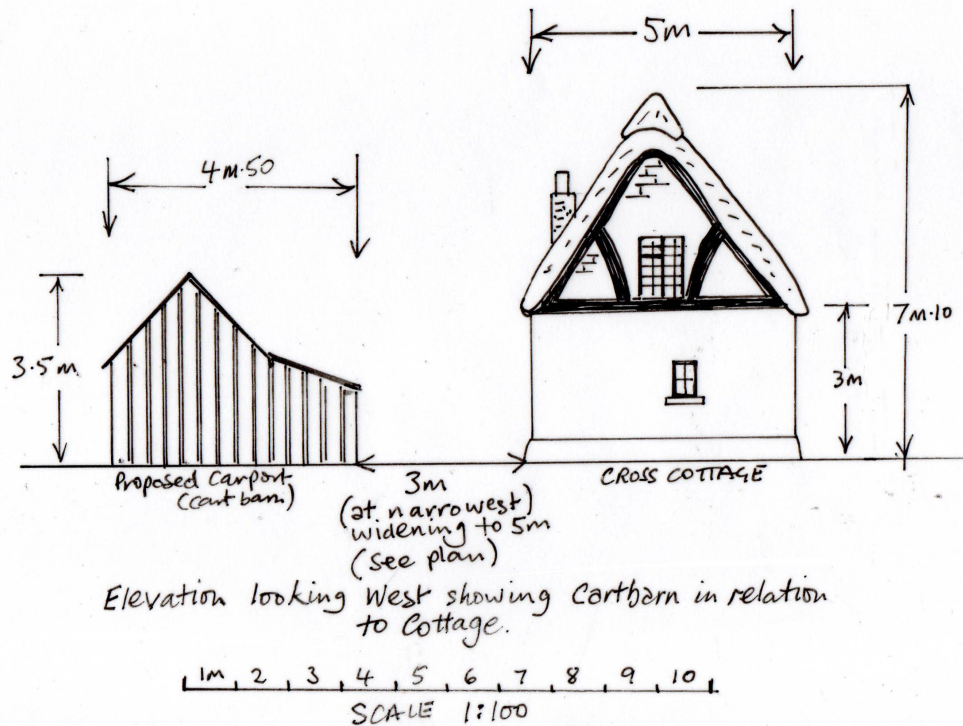 5m
4m.50
7m.10
3.5m
3m
Proposed Carport
(cart barn)
3m
(at narrowest)
widening to 5m
(see plan)
CROSS COTTAGE
Elevation looking West showing Cartbarn in relation
to Cottage.
1m 2 3 4 5 6 7 8 9 10
SCALE 1:100